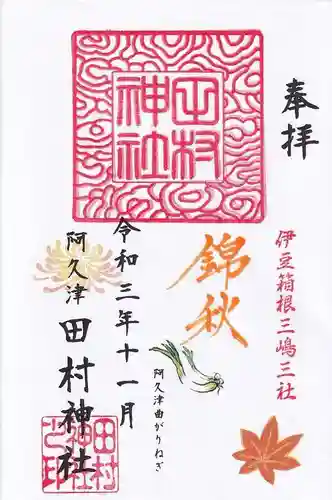 奉拝
伊豆箱根三嶋三社
錦秋
田村神社
阿久津曲がりねぎ
令和三年十一月
阿久津
田村神社
田村神社之印